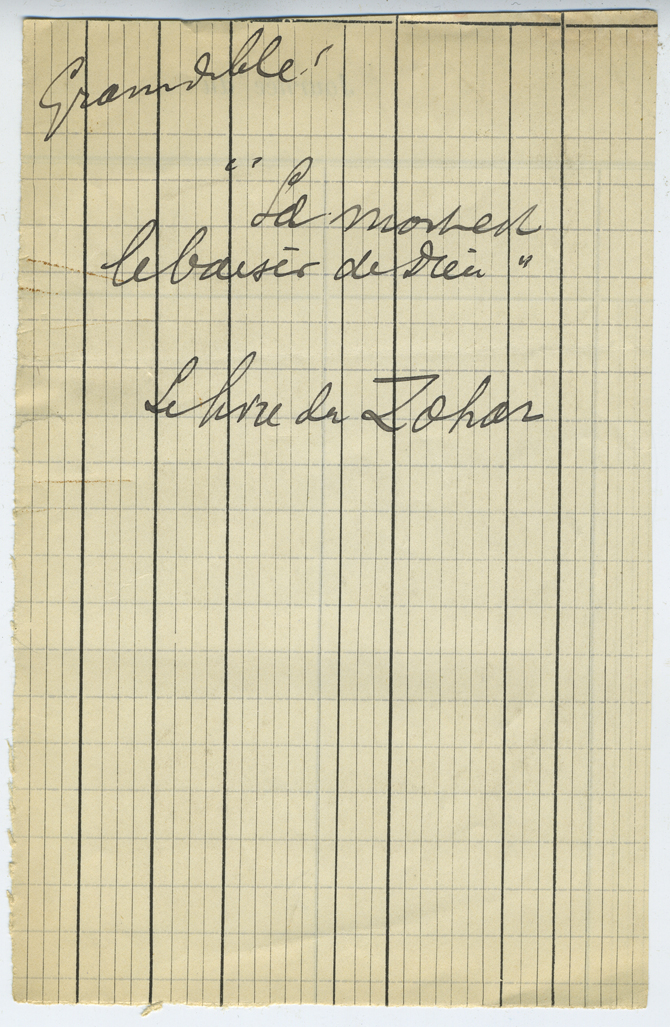 " La mort est
le baiser de Dieu "
Le livre du Zohar